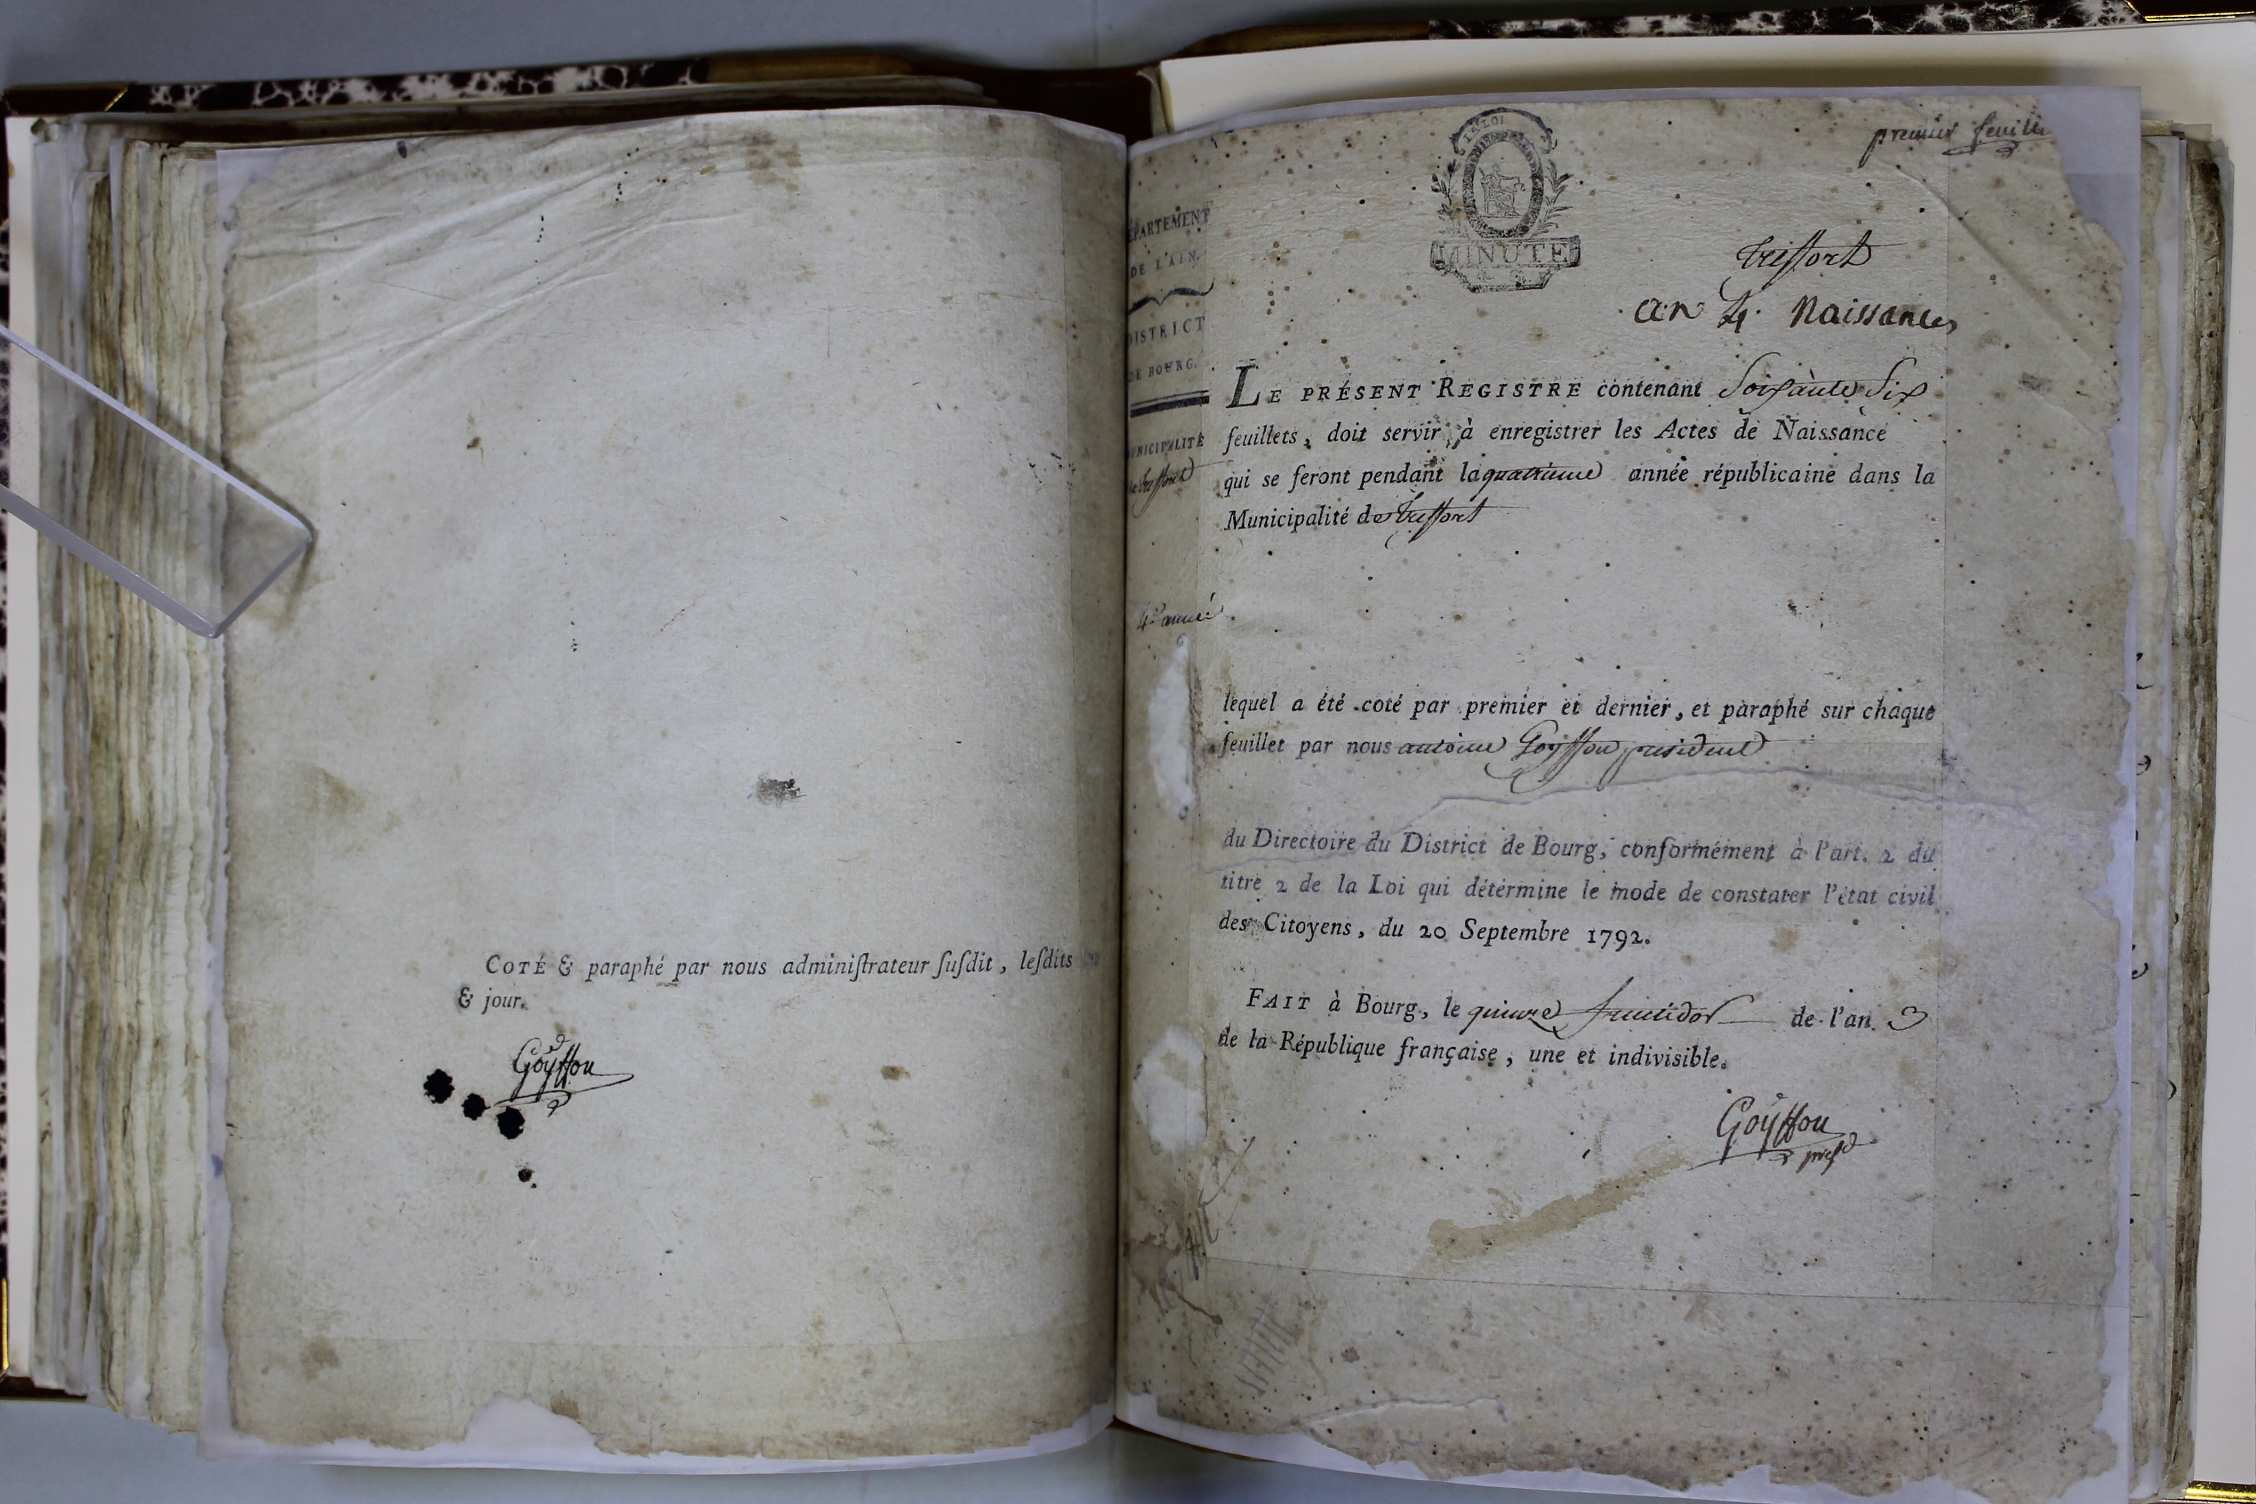 COTÉ & paraphé par nous adminiſtrateur ſuſdit, leſdits
& jour.
Goÿffon
premier feuille
LA LOI
MINUTE
DÉPARTEMENT
DE L'AIN.
DISTRICT
DE BOURG.
MUNICIPALITÉ
de treffort
4e année
treffort
an 4. Naissances
LE PRÉSENT REGISTRE contenant Soixante Six
feuillets, doit servir à enregistrer les Actes de Naissance
qui se feront pendant la quatrieme année républicaine dans la
Municipalité de treffort
lequel a été coté par premier et dernier, et paraphé sur chaque
feuillet par nous antoine Goyffon president
du Directoire du District de Bourg, conformément à l'art. 2 du
titre 2 de la Loi qui détermine le mode de constater l'état civil
des Citoyens, du 20 Septembre 1792.
FAIT à Bourg, le quinze fructidor de l'an 3
de la République française, une et indivisible.
Goÿffon
presd